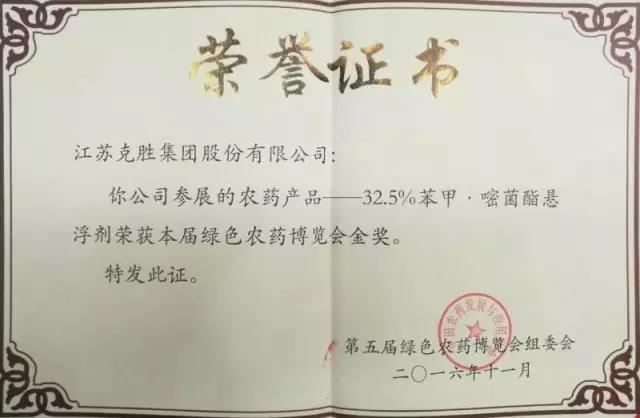 荣誉证书
江苏克胜集团股份有限公司:
你公司参展的农药产品——32.5%苯甲·嘧菌酯悬
浮剂荣获本届绿色农药博览会金奖。
特发此证。
第五届绿色农药博览会组委会
二〇一六年十一月